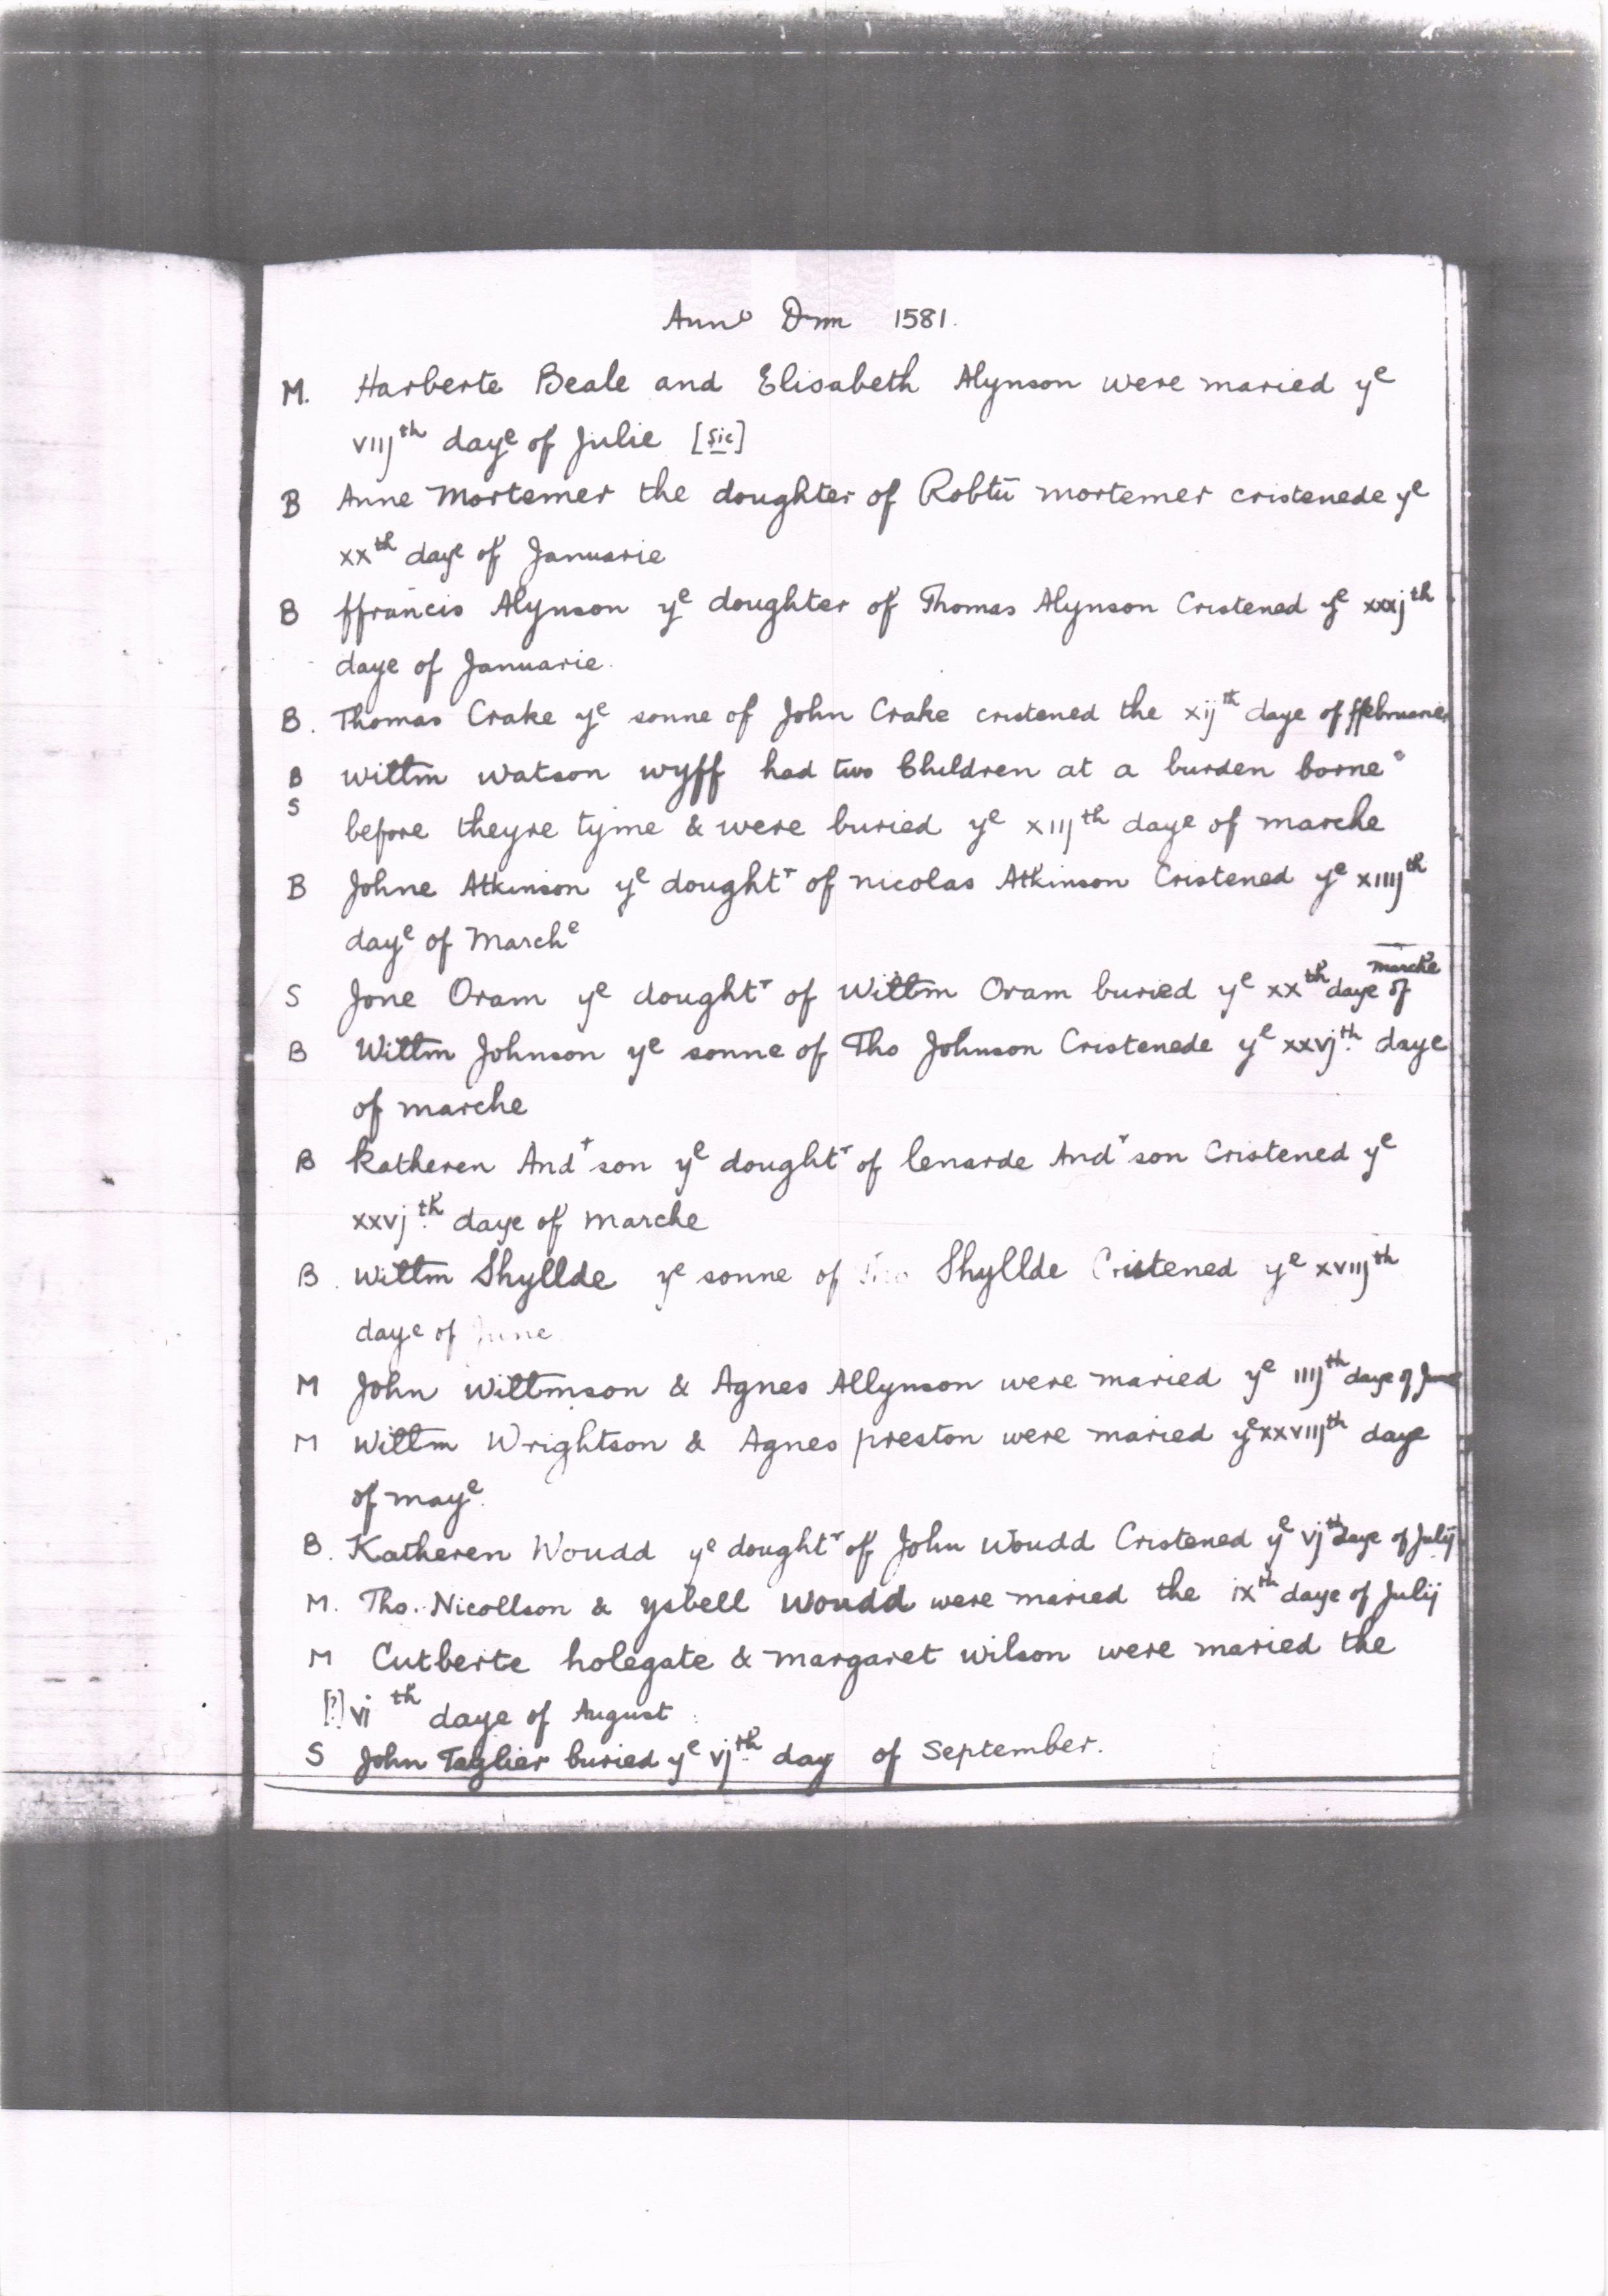 Anno Dm 1581.
M. Harberte Beale and Elisabeth Alynson were maried ye
viijth daye of Julie [sic]
B Anne Mortemer the doughter of Robtū mortemer cristenede ye
xxth daye of Januarie
B ffrancis Alynson ye doughter of Thomas Alynson Cristened ye xxxjth
daye of Januarie.
B. Thomas Crake ye sonne of John Crake cristened the xijth daye of ffebruarie
B Willm Watson wyff had two Children at a burden borne
S before theyre tyme & were buried ye xiijth daye of marche
B Johne Atkinson ye doughtr of nicolas Atkinson Cristened ye xiiijth
daye of Marche
S Jone Oram ye doughtr of Willm Oram buried ye xxth daye of marche
B Willm Johnson ye sonne of Tho Johnson Cristenede ye xxvjth daye
of marche
B katheren Andrson ye doughtr of lenarde Andrson Cristened ye
xxvjth daye of Marche
B. Willm Shyllde ye sonne of Shyllde Cristened ye xviijth
daye of June
M John Willmson & Agnes Allynson were maried ye iiijth daye of June
M Willm Wrightson & Agnes preston were maried ye xxviijth daye
of maye.
B. Katheren Woudd ye doughtr of John Woudd Cristened ye vjth daye of Julij
M. Tho. Nicollson & ysbell Woudd were maried the ixth daye of Julij
M Cutberte holegate & margaret Wilson were maried the
[?] vi th daye of August
S John Taylier buried ye vjth day of September.